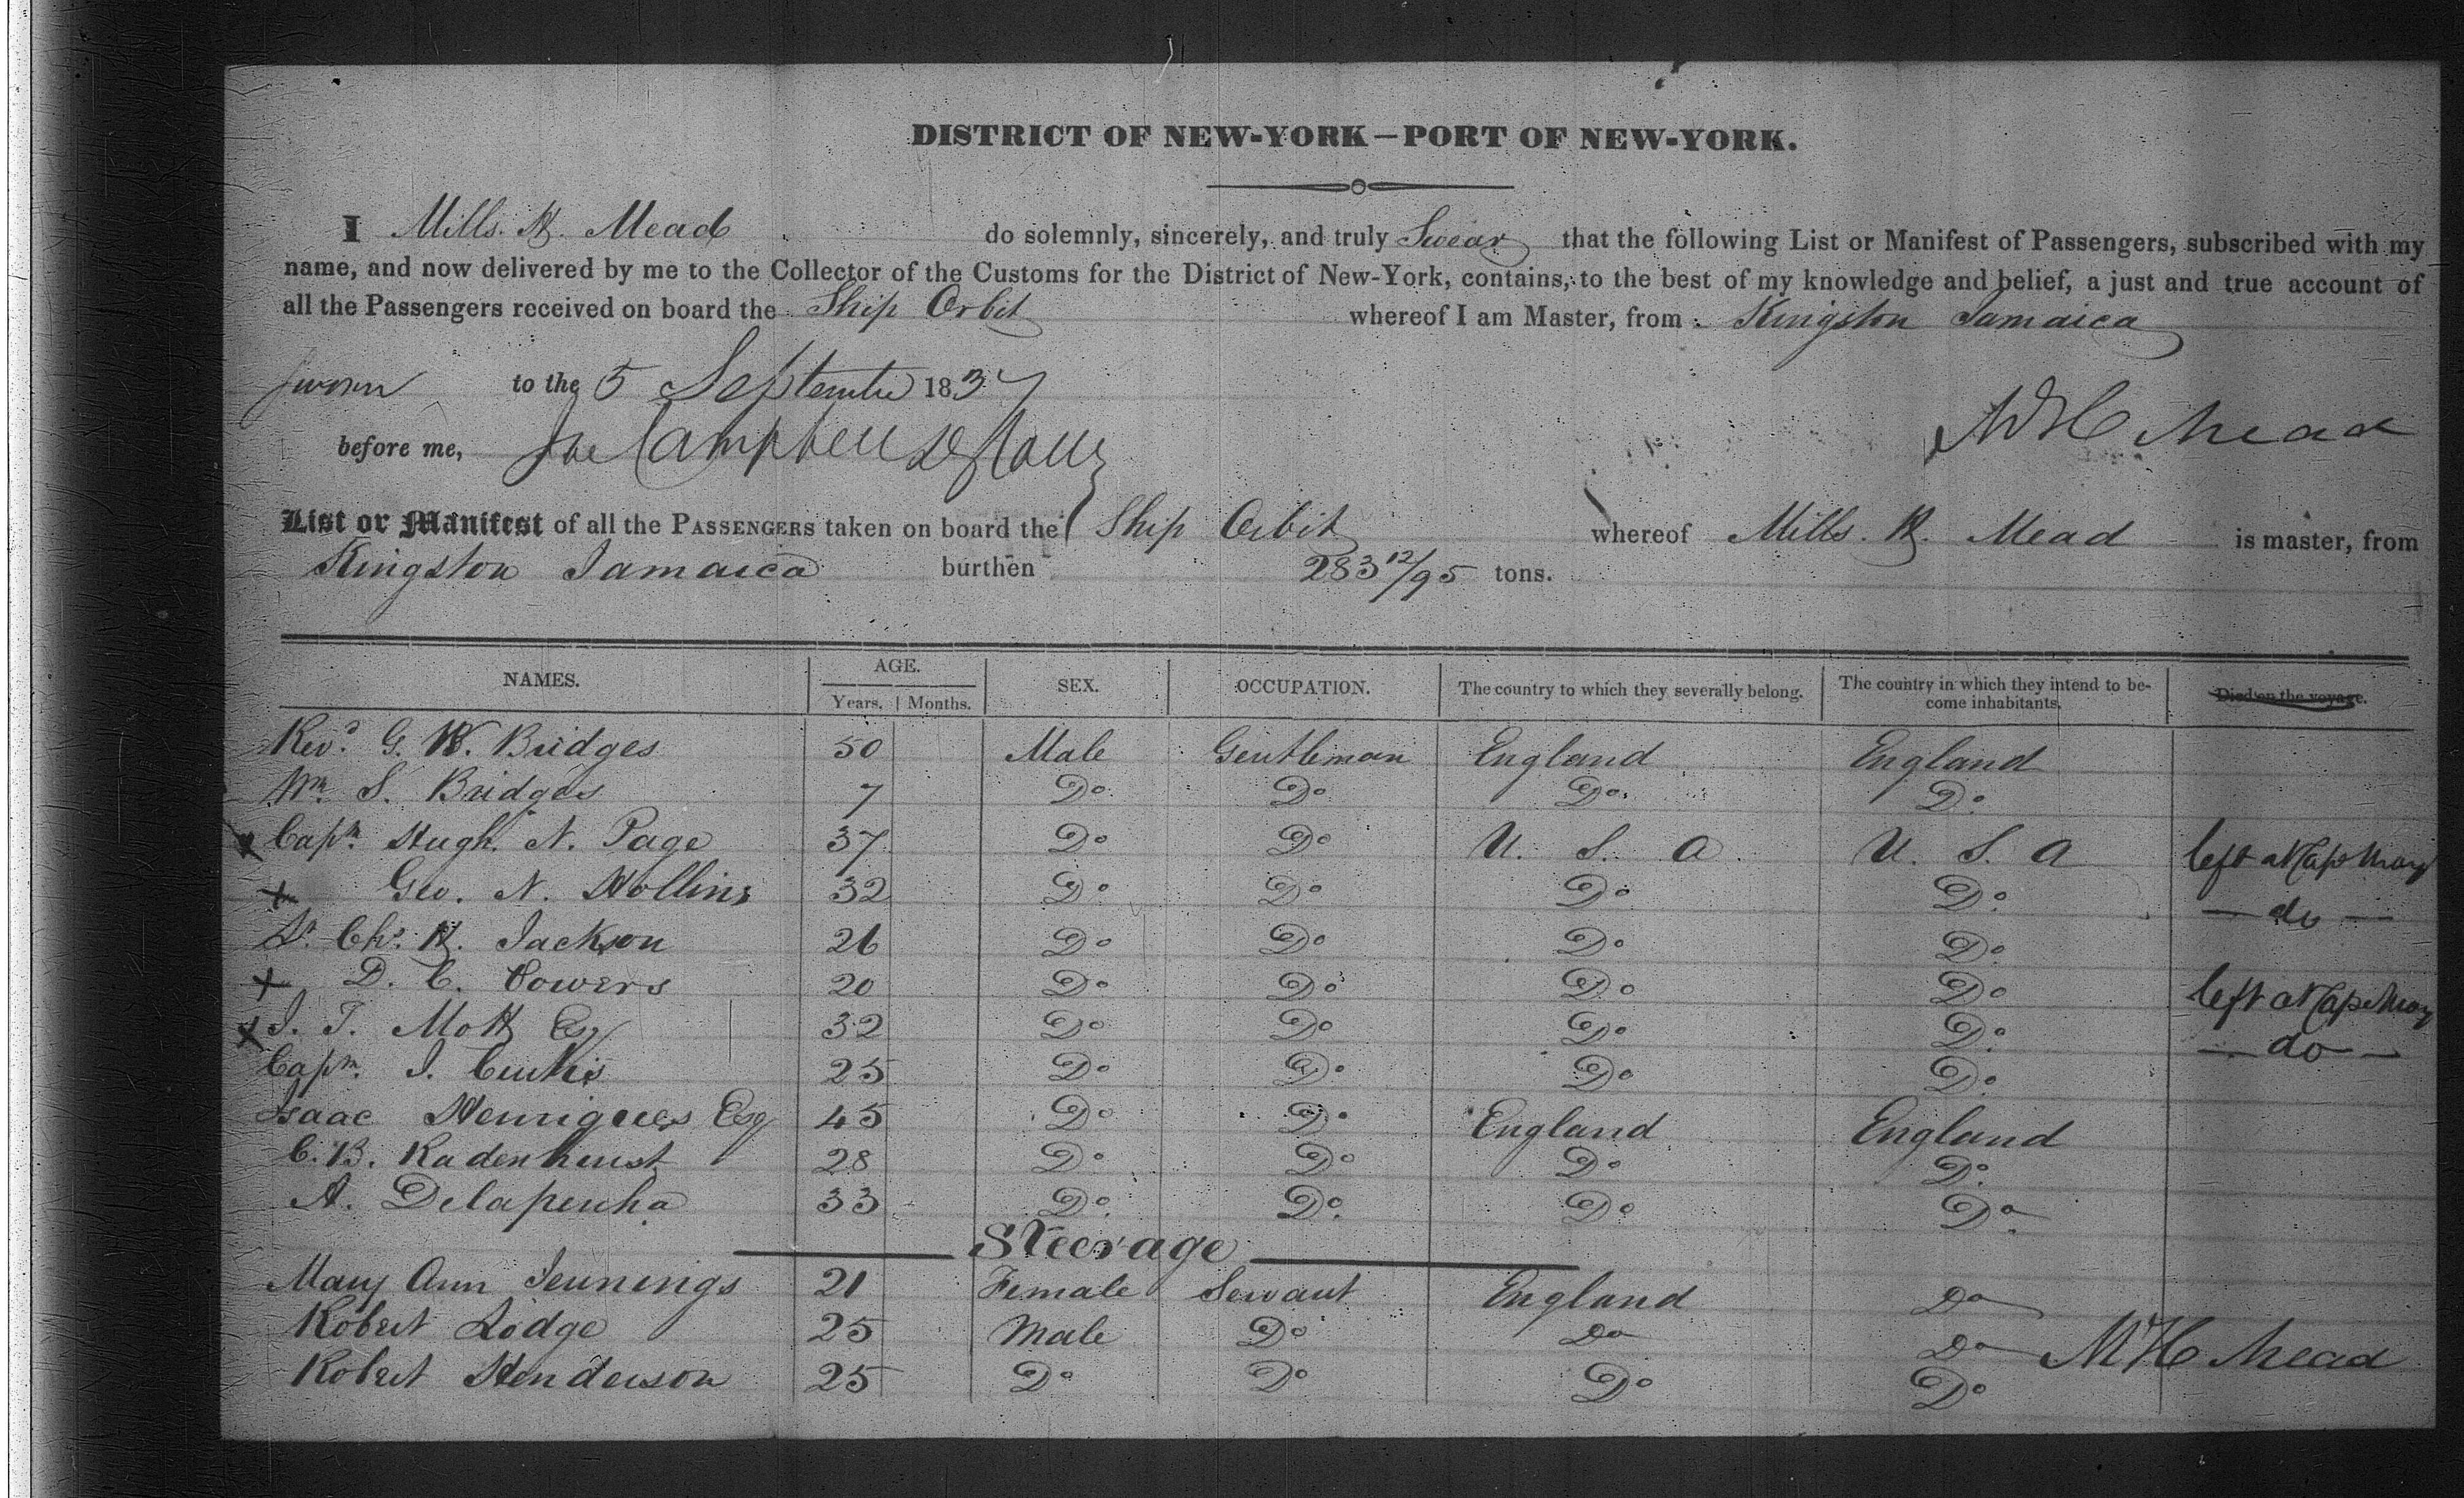 DISTRICT OF NEW-YORK—PORT OF NEW-YORK.
I Mills. H. Mead do solemnly, sincerely, and truly Swear that the following List or Manifest of Passengers, subscribed with my
name, and now delivered by me to the Collector of the Customs for the District of New-York, contains, to the best of my knowledge and belief, a just and true account of
all the Passengers received on board the Ship Orbit whereof I am Master, from Kingston Jamaica
Sworn to the 5 September 1837
M H Mead
before me, Campbell
List or Manifest of all the PASSENGERS taken on board the Ship Orbit whereof Mills. H. Mead is master, from
Kingston Jamaica burthen 283 12/95 tons.
NAMES. AGE. SEX. OCCUPATION. The country to which they severally belong. The country in which they intend to be- Died on the voyage.
Years. Months. come inhabitants.
Revd. G. W. Bridges 50 Male Gentleman England England
Wm. S. Bridges 7 Do Do Do Do
x Capn. Hugh. N. Page 37 Do Do U. S. A U. S. A left at Cape May
x Geo. N. Hollins 32 Do Do Do Do — do —
Chs. H. Jackson 26 Do Do Do Do
x D. C. Bowers 20 Do Do Do Do left at Cape May
x J. T. Mott Esq 32 Do Do Do Do — do —
Capn. J. Curtis 25 Do Do Do Do
Isaac Henriques Esq 45 Do Do England England
C. B. Radenhurst 28 Do Do Do Do
A. Delapenha 33 Do Do Do Do
Steerage
Mary Ann Jennings 21 Female Servant England Do
Robert Lodge 25 Male Do Do Do M H Mead
Robert Henderson 25 Do Do Do Do